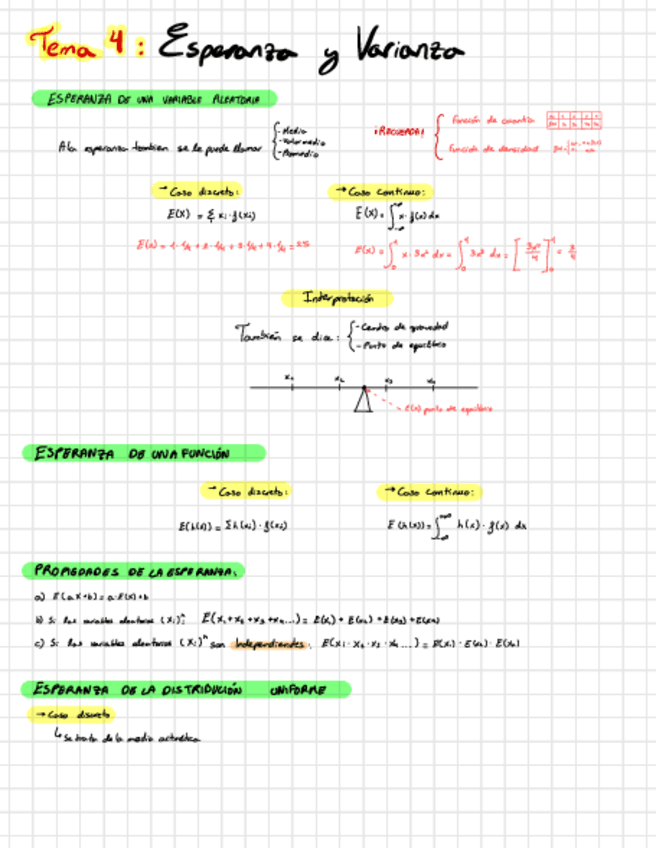 Tema 4: Esperanza y Varianza
ESPERANZA DE UNA VARIABLE ALEATORIA
A la esperanza tambien se le puede llamar
- Media
- Valor medio
- Promedio
¡RECUERDA!
Función de cuantía
Función de densidad
→ Caso discreto:
→ Caso continuo:
E(X) = Σ xi · f(xi)
E(X) = ∫ x · f(x) dx
E(x) = 1 · 1/4 + 2 · 1/4 + 3 · 1/4 + 4 · 1/4 = 2'5
E(x) = ∫₀¹ x · 3x² dx = ∫₀¹ 3x³ dx = [3x⁴/4]₀¹ = 3/4
Interpretación
También se dice:
- Centro de gravedad
- Punto de equilibrio
x₁ x₂ x₃ x₄
E(x) punto de equilibrio
ESPERANZA DE UNA FUNCIÓN
→ Caso discreto:
→ Caso continuo:
E(h(x)) = Σh(xi) · f(xi)
E(h(x)) = ∫ h(x) · f(x) dx
PROPIEDADES DE LA ESPERANZA:
a) E(aX+b) = a·E(X)+b
b) Si las variables aleatorias (Xi)ⁿ: E(X₁+X₂+X₃+X₄...) = E(X₁) + E(X₂) + E(X₃) + E(X₄)
c) Si las variables aleatorias (Xi)ⁿ son Independientes:
ESPERANZA DE LA DISTRIBUCIÓN UNIFORME
→ Caso discreto
↳ Se trata de la media aritmética